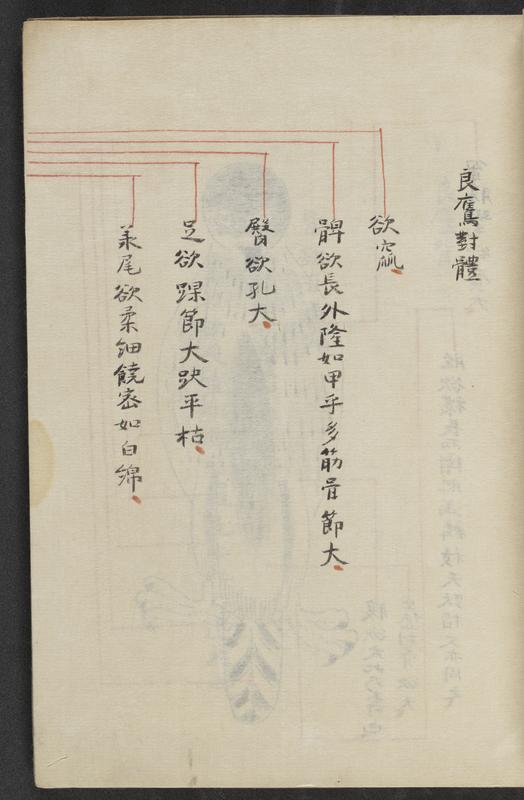 良鷹對體
欲窳
髀欲長外隆如甲乎多筋骨節大
臀欲孔大
足欲踝節大趺平枯
尾欲柔細饒密如白綿